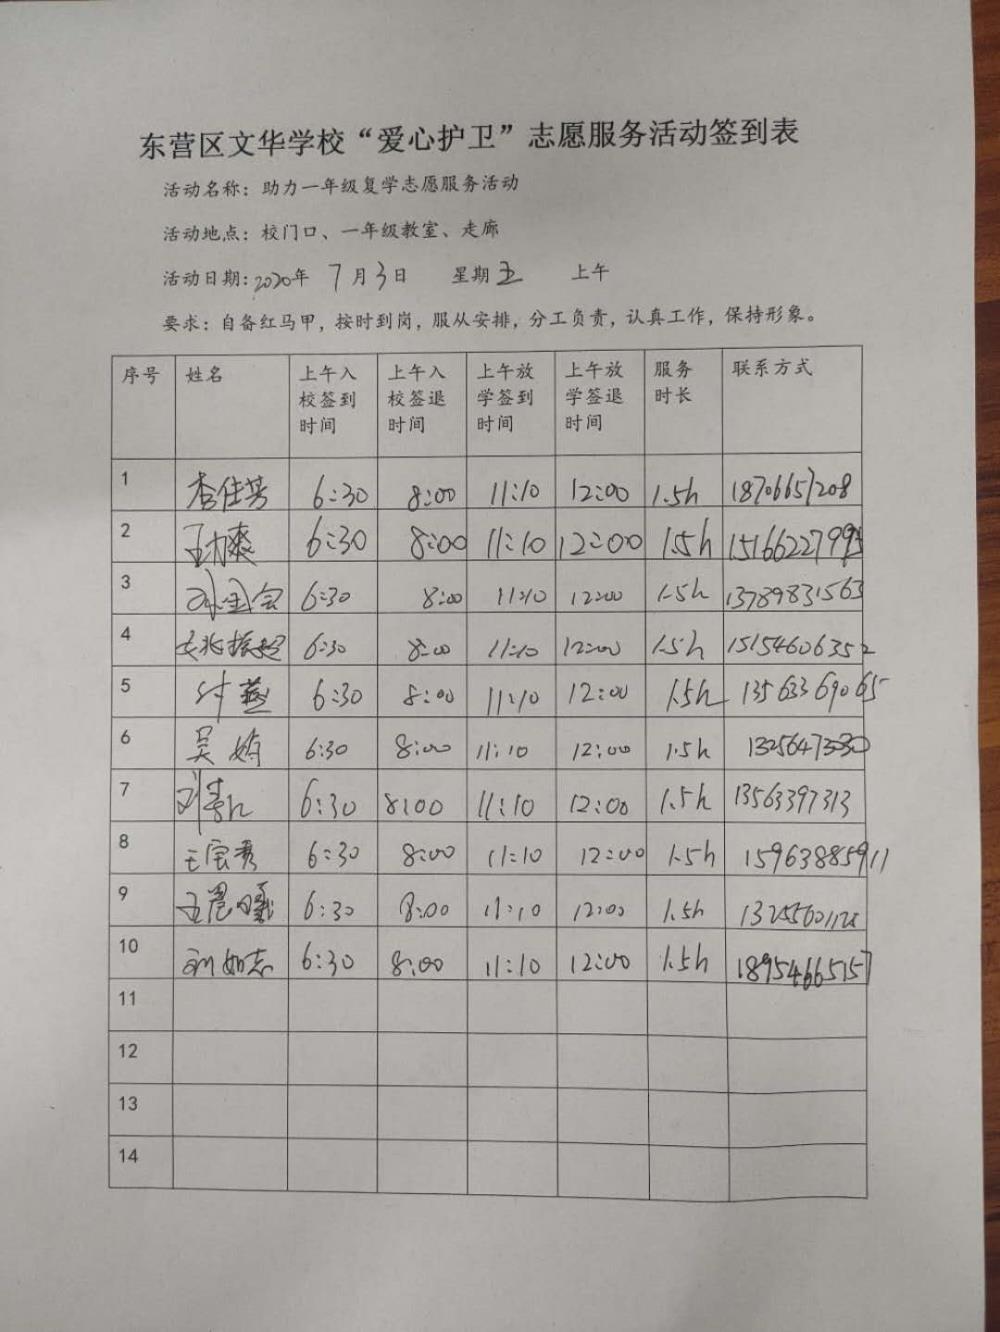 东营区文华学校“爱心护卫”志愿服务活动签到表
活动名称：助力一年级复学志愿服务活动
活动地点：校门口、一年级教室、走廊
活动日期：2020年 7月3日 星期五 上午
要求：自备红马甲，按时到岗，服从安排，分工负责，认真工作，保持形象。
序号 姓名 上午入校签到时间 上午入校签退时间 上午放学签到时间 上午放学签退时间 服务时长 联系方式
1 6:30 8:00 11:10 12:00 1.5h 18706657208
2 6:30 8:00 11:10 12:00 1.5h
3 6:30 8:00 11:10 12:00 1.5h 13789831563
4 6:30 8:00 11:10 12:00 1.5h 15154606352
5 付燕 6:30 8:00 11:10 12:00 1.5h 13563369065
6 吴娟 6:30 8:00 11:10 12:00 1.5h
7 6:30 8:00 11:10 12:00 1.5h 13563397313
8 王宝秀 6:30 8:00 11:10 12:00 1.5h 15963885911
9 王晨曦 6:30 8:00 11:10 12:00 1.5h
10 刘如志 6:30 8:00 11:10 12:00 1.5h 18954665157
11
12
13
14